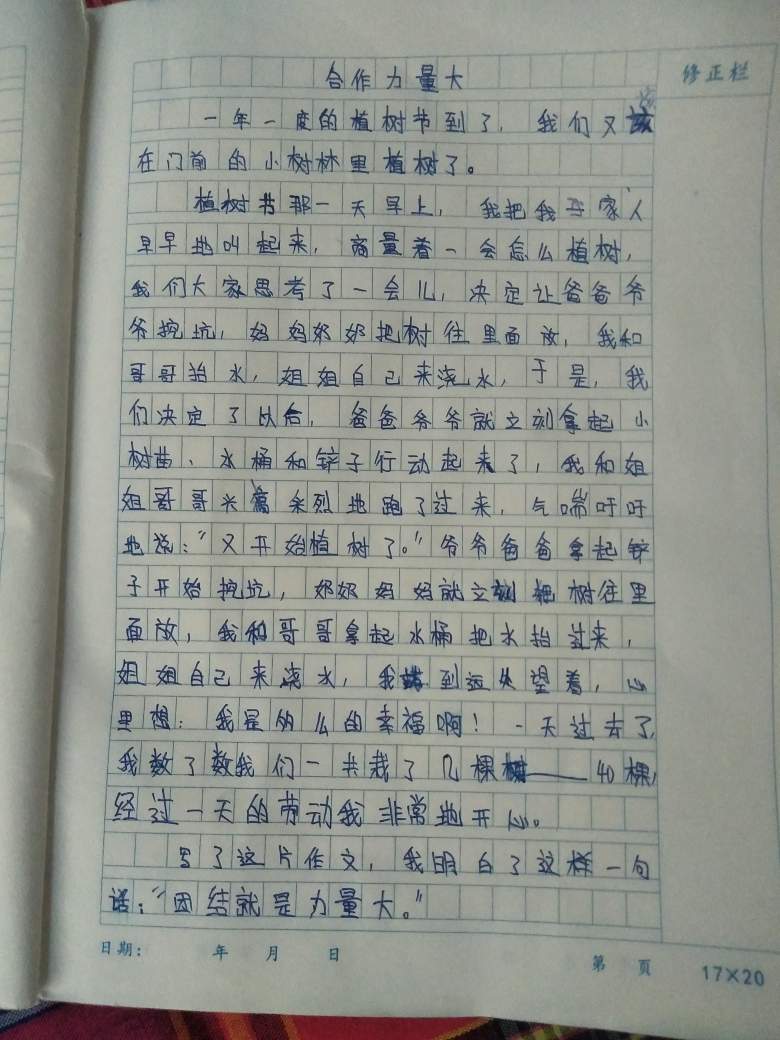 合作力量大
修正栏
一年一度的植树节到了，我们又该
在门前的小树林里植树了。
植树节那一天早上，我把我家人
早早地叫起来，商量着一会怎么植树，
我们大家思考了一会儿，决定让爸爸爷
爷挖坑，妈妈奶奶把树往里面放，我和
哥哥抬水，姐姐自己来浇水，于是，我
们决定了以后，爸爸爷爷就立刻拿起小
树苗、水桶和铲子行动起来了，我和姐
姐哥哥兴高采烈地跑了过来，气喘吁吁
地说："又开始植树了。"爷爷爸爸拿起铲
子开始挖坑，奶奶妈妈就立刻把树往里
面放，我和哥哥拿起水桶把水抬过来，
姐姐自己来浇水，我到远处望着，心
里想：我是的么的幸福啊！一天过去了，
我数了数我们一共栽了几棵树——40棵，
经过一天的劳动我非常地开心。
写了这片作文，我明白了这样一句
话："团结就是力量大。"
日期： 年 月 日
第 页 17×20